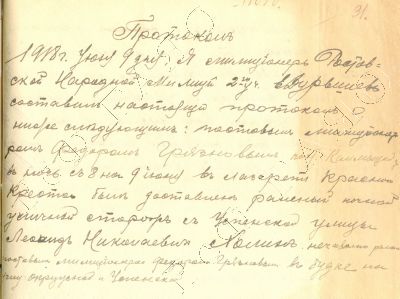 31.
Протоколъ
1918г. Июня 9 дня. Я милиционеръ Ростов-
ской Народной Милиціи 2го уч.
составилъ настоящій протоколъ о
нижеслѣдующемъ: постовымъ милиціоне-
ромъ Федоромъ Грязновымъ
въ ночь съ 8 на 9 Іюня въ лазаретъ Краснаго
Креста былъ доставленъ раненый ночной
уличный сторожъ съ Успенской улицы
Леонидъ Николаевичъ нечаянно ранен
постовымъ милиціонеромъ Федоромъ Грязновымъ въ будке на
углу и Успенской